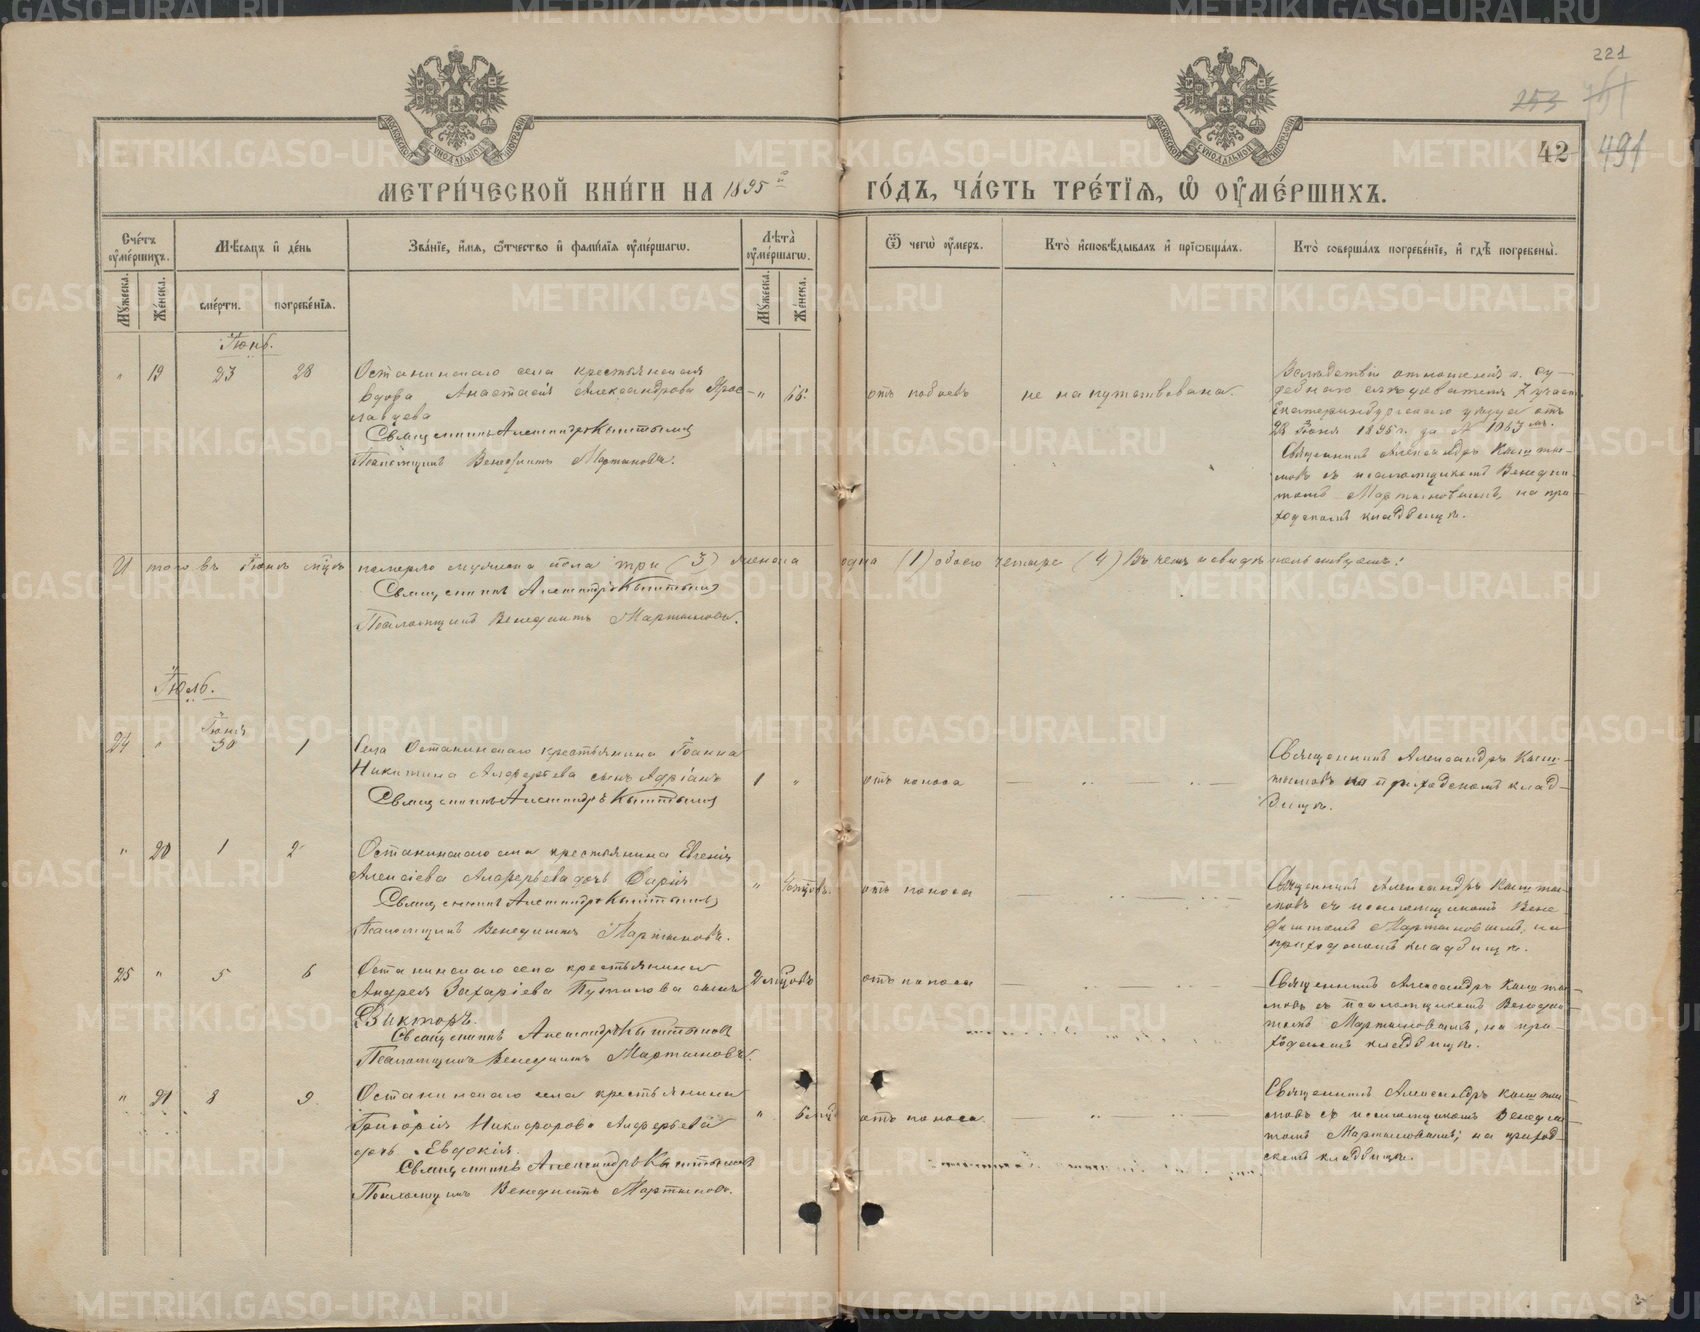 221
253
491
42
МЕТРИ́ЧЕСКОЙ КНИ́ГИ НА 1895 го́дъ, ча́сть тре́тїѧ, ѽ ᲂу҆ме́ршихъ.
Сче́тъ ᲂу҆ме́ршихъ.
Мѣ́сѧцъ и҆ де́нь
Зва́нїе, и҆́мѧ, ѻ҆́тчество и҆ фами́лїѧ ᲂу҆ме́ршагѡ.
Лѣта̀ ᲂу҆ме́ршагѡ.
Ѿ чегѡ̀ ᲂу҆́меръ.
Кто̀ и҆сповѣ́дывалъ и҆ прїѡбща́лъ.
Кто̀ соверша́лъ погребе́нїе, и҆ гдѣ̀ погребены̀.
Мꙋ́жеска.
Же́нска.
сме́рти.
погребе́нїѧ.
Мꙋ́жеска.
Же́нска.
Іюнь.
" 19 23 28
Останинскаго села крестьянская
вдова Анастасія Александрова Ярос-
лавцева
Священникъ Александръ Кыштымовъ
Псаломщикъ Венедиктъ Мартыновъ.
" 66.
отъ побоевъ
не напутствована.
Вслѣдствіе отношенія г. Су-
дебнаго слѣдователя 7 участ.
Екатеринбургскаго уѣзда отъ
28 Іюня 1895 г. за № 1063
Священникъ Александръ Кышты-
мовъ съ псаломщикомъ Венедик-
томъ Мартыновымъ, на при-
ходскомъ кладбищѣ.
Итого въ Іюнѣ мѣс. померло мужеска пола три (3) женска одна (1) обоего четыре (4) Въ чемъ и свидѣтельствуемъ:
Священникъ Александръ Кыштымовъ
Псаломщикъ Венедиктъ Мартыновъ.
Іюль.
Іюня
24 " 30 1
Села Останинскаго крестьянина Іоанна
Никитина Алферьева сынъ Адріанъ
Священникъ Александръ Кыштымовъ
1 "
отъ поноса
Священникъ Александръ Кыш-
тымовъ на приходскомъ клад-
бищѣ.
" 20 1 2
Останинскаго села крестьянина Евгенія
Алексіева Алферьева дочь
Священникъ Александръ Кыштымовъ
Псаломщикъ Венедиктъ Мартыновъ.
отъ поноса
Священникъ Александръ Кышты-
мовъ съ псаломщикомъ Вене-
диктомъ Мартыновымъ, на
приходскомъ кладбищѣ.
25 " 5 6
Останинскаго села крестьянина
Андрея Захаріева Путилова сынъ
Викторъ.
Священникъ Александръ Кыштымовъ
Псаломщикъ Венедиктъ Мартыновъ.
2 мѣсяцовъ
отъ поноса
Священникъ Александръ Кышты-
мовъ съ псаломщикомъ Венедик-
томъ Мартыновымъ, на при-
ходскомъ кладбищѣ.
" 21 8 9
Останинскаго села крестьянина
Григорія Никифорова Алферьева
дочь Евдокія.
Священникъ Александръ Кыштымовъ
Псаломщикъ Венедиктъ Мартыновъ.
" 6 мѣс.
отъ поноса
Священникъ Александръ Кышты-
мовъ съ псаломщикомъ Венедик-
томъ Мартыновымъ, на приход-
скомъ кладбищѣ.
METRIKI.GASO-URAL.RU